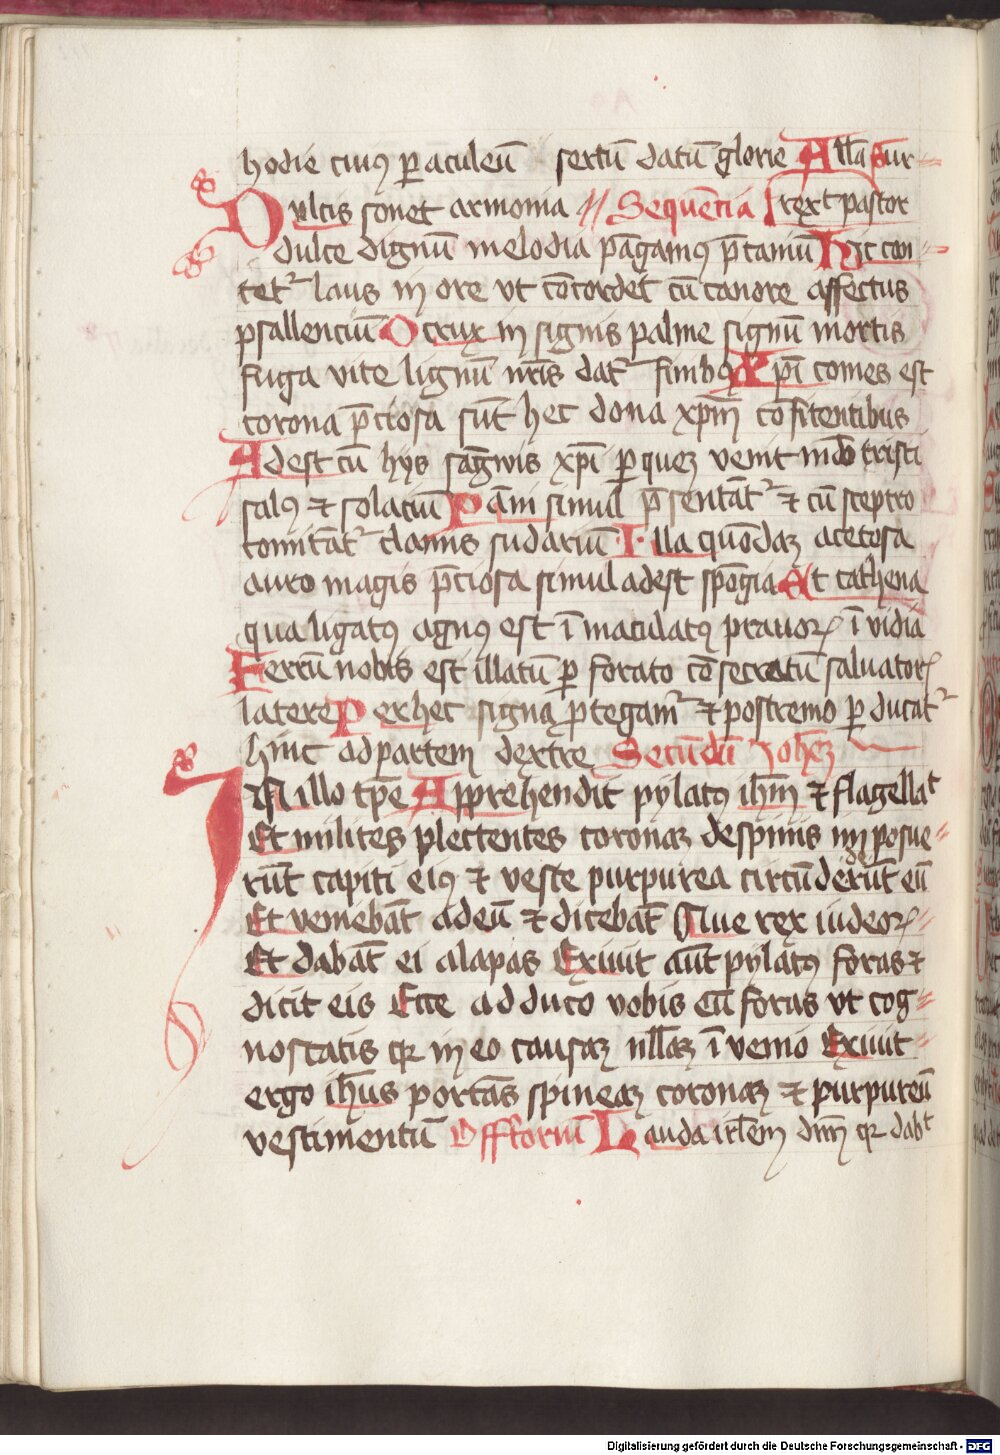 hodie cuiꝰ ꝑ aculeū sertū datū glorie All̄a Sur=
Dulcis sonet armonia // Sequēncia rexͭ pastor
dulce dignū melodia pāgamꝰ p̄camiū Hic con=
tet᷑ laus in ore vt cōcordet cū canore affectus
psallenciū O crux in signis palme signū mortis
fuga vite lignū nr̄is dat᷑ fimbꝰ xpī comes est
corona p̄ciosa sūt hec dona xp̄m cōfitentibus
Adest cū hijs sāgwis xpī ꝑ quez venit mūdo tristi
salꝰ ⁊ solaciū Pāni simul p̄sentāt᷑ ⁊ cū sceptro
comitāt᷑ clauus sudariū Illa quōdaz acetosa
auro magis p̄ciosa simul adest spōgia At cathena
qua ligatꝰ agnꝰ est īmaculatꝰ prauoꝝ īvidia
Ferrū nobis est illatū ꝑforato cōsecratū saluatoꝝ
latere Per hec signa ꝓtegam᷑ ⁊ postremo ꝑducat᷑
hinc ad partem dextre Secūdū Joh̄ez
IN illo tp̄e Apprehendit pylatꝰ ih̄m ⁊ flagellaͭ
Et milites plectentes coronaz de spinis inposue=
rūt capiti eiꝰ ⁊ veste purpurea circūdederūt eū
Et veniebāt ad eū ⁊ dicebāt Aue rex iudeoꝝ
Et dabāt ei alapas Exiuit aūt pylatꝰ foras ⁊
dicit eis Ecce adduco vobis eū foras vt cog=
noscatis qꝛ in eo causaz nll̄az īvenio Exiuit
ergo ih̄us portās spineaz coronaz ⁊ purpureū
vestimentū Offertoriū Lauda irl̄em dn̄m qꝛ dabͭ
Digitalisierung gefördert durch die Deutsche Forschungsgemeinschaft - DFG